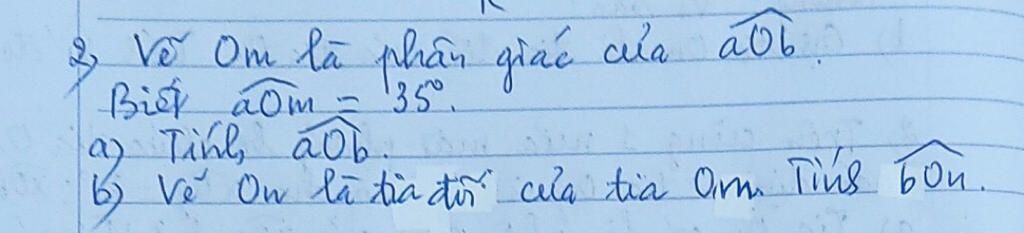 2, Vẽ Om là phân giác của aOb.
Biết aOm = 35°.
a) Tính aOb.
b) Vẽ On là tia đối của tia Om. Tính bOn.